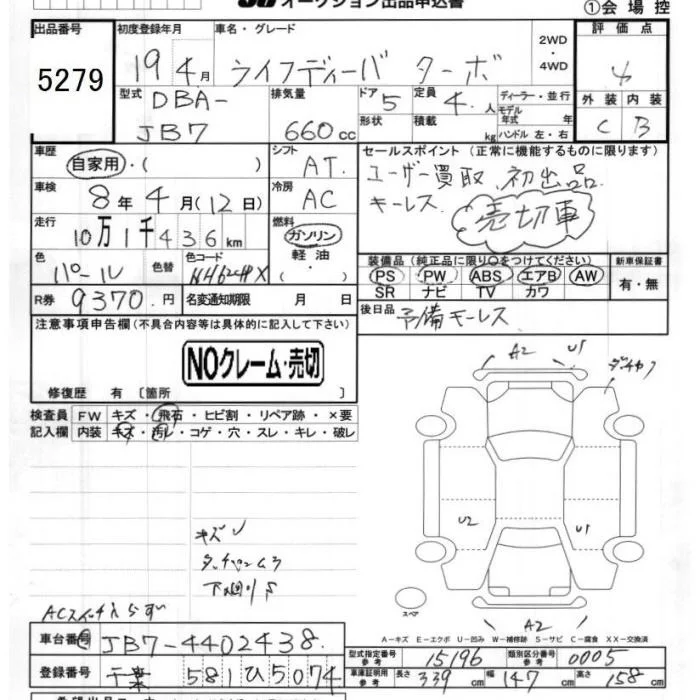 オークション出品申込書 ①会場控
出品番号 初度登録年月 車名・グレード 2WD・4WD 評価点
5279 19 4月 ライフディーバ ターボ 4
型式 DBA-JB7 排気量 660cc ドア 5 形状 定員 4.人 積載 kg ディーラー・並行 モデル年式 年 ハンドル 左・右 外装 内装 C B
車歴 自家用・( ) シフト AT. セールスポイント (正常に機能するものに限ります)
車検 8年4月(12日) 冷房 AC ユーザー買取 初出品
キーレス 売切車
走行 10万1千436km 燃料 ガソリン 軽油・( )
色 パール 色替 色コード 装備品(純正品に限り○をつけてください) 新車保証書
PS PW ABS エアB AW 有・無
SR ナビ TV カワ
R券 9370.円 名変通知期限 月 日 後日品 予備キーレス
注意事項申告欄(不具合内容等は具体的に記入して下さい)
NOクレーム・売切
修復歴 有 〔箇所 〕
検査員 FW キズ・飛石・ヒビ割・リペア跡・×要
記入欄 内装 キズ・汚レ・コゲ・穴・スレ・キレ・破レ
A2 U1
U2 U1
キズ
下廻りS
ACスイッチ入らず
スペア
A2
A-キズ E-エクボ U-凹み W-補修跡 S-サビ C-腐食 XX-交換済
車台番号 JB7-4402438. 型式指定番号 参考 15196 類別区分番号 参考 0005
登録番号 千葉 581ひ5074 車庫証明用 参考 長さ 339cm 幅 147cm 高さ 158cm